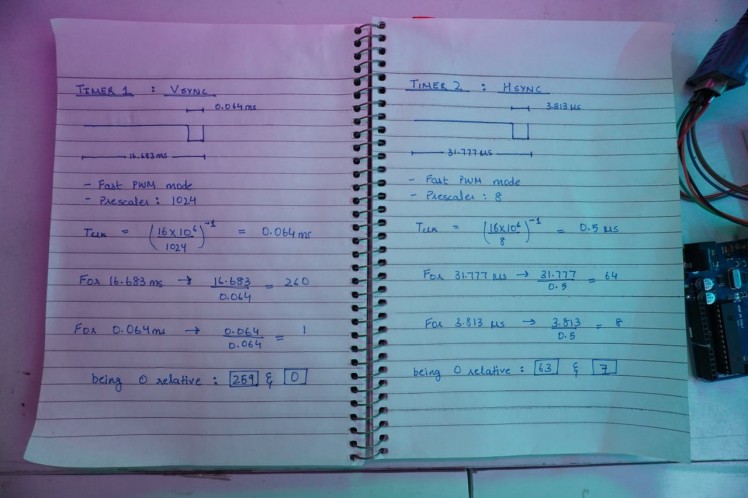 TIMER 1 : VSYNC
0.064 ms
16.683 ms
- Fast PWM mode
- Prescaler : 1024
TCLK = (16×10⁶/1024)⁻¹ = 0.064 ms
For 16.683 ms → 16.683/0.064 = 260
For 0.064 ms → 0.064/0.064 = 1
being 0 relative : 259 & 0
TIMER 2 : HSYNC
3.813 μs
31.777 μs
- Fast PWM mode
- Prescaler : 8
TCLK = (16×10⁶/8)⁻¹ = 0.5 μs
For 31.777 μs → 31.777/0.5 = 64
For 3.813 μs → 3.813/0.5 = 8
being 0 relative : 63 & 7